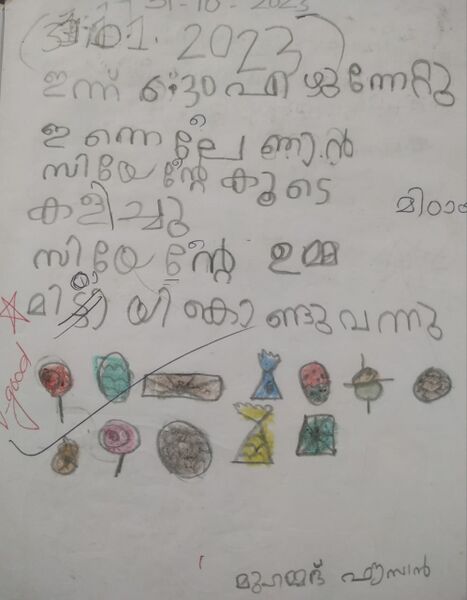 31-10-2023
2023
ഇന്ന് 6:30 എഴുന്നേറ്റു
ഇന്നലെ ഞാൻ
സിയേന്റേ കൂടെ
കളിച്ചു
മിഠാ
സിയേന്റേ ഉമ്മ
മിഠായി കൊണ്ടുവന്നു
V-good
മുഹമ്മദ് ഫൗസാൻ